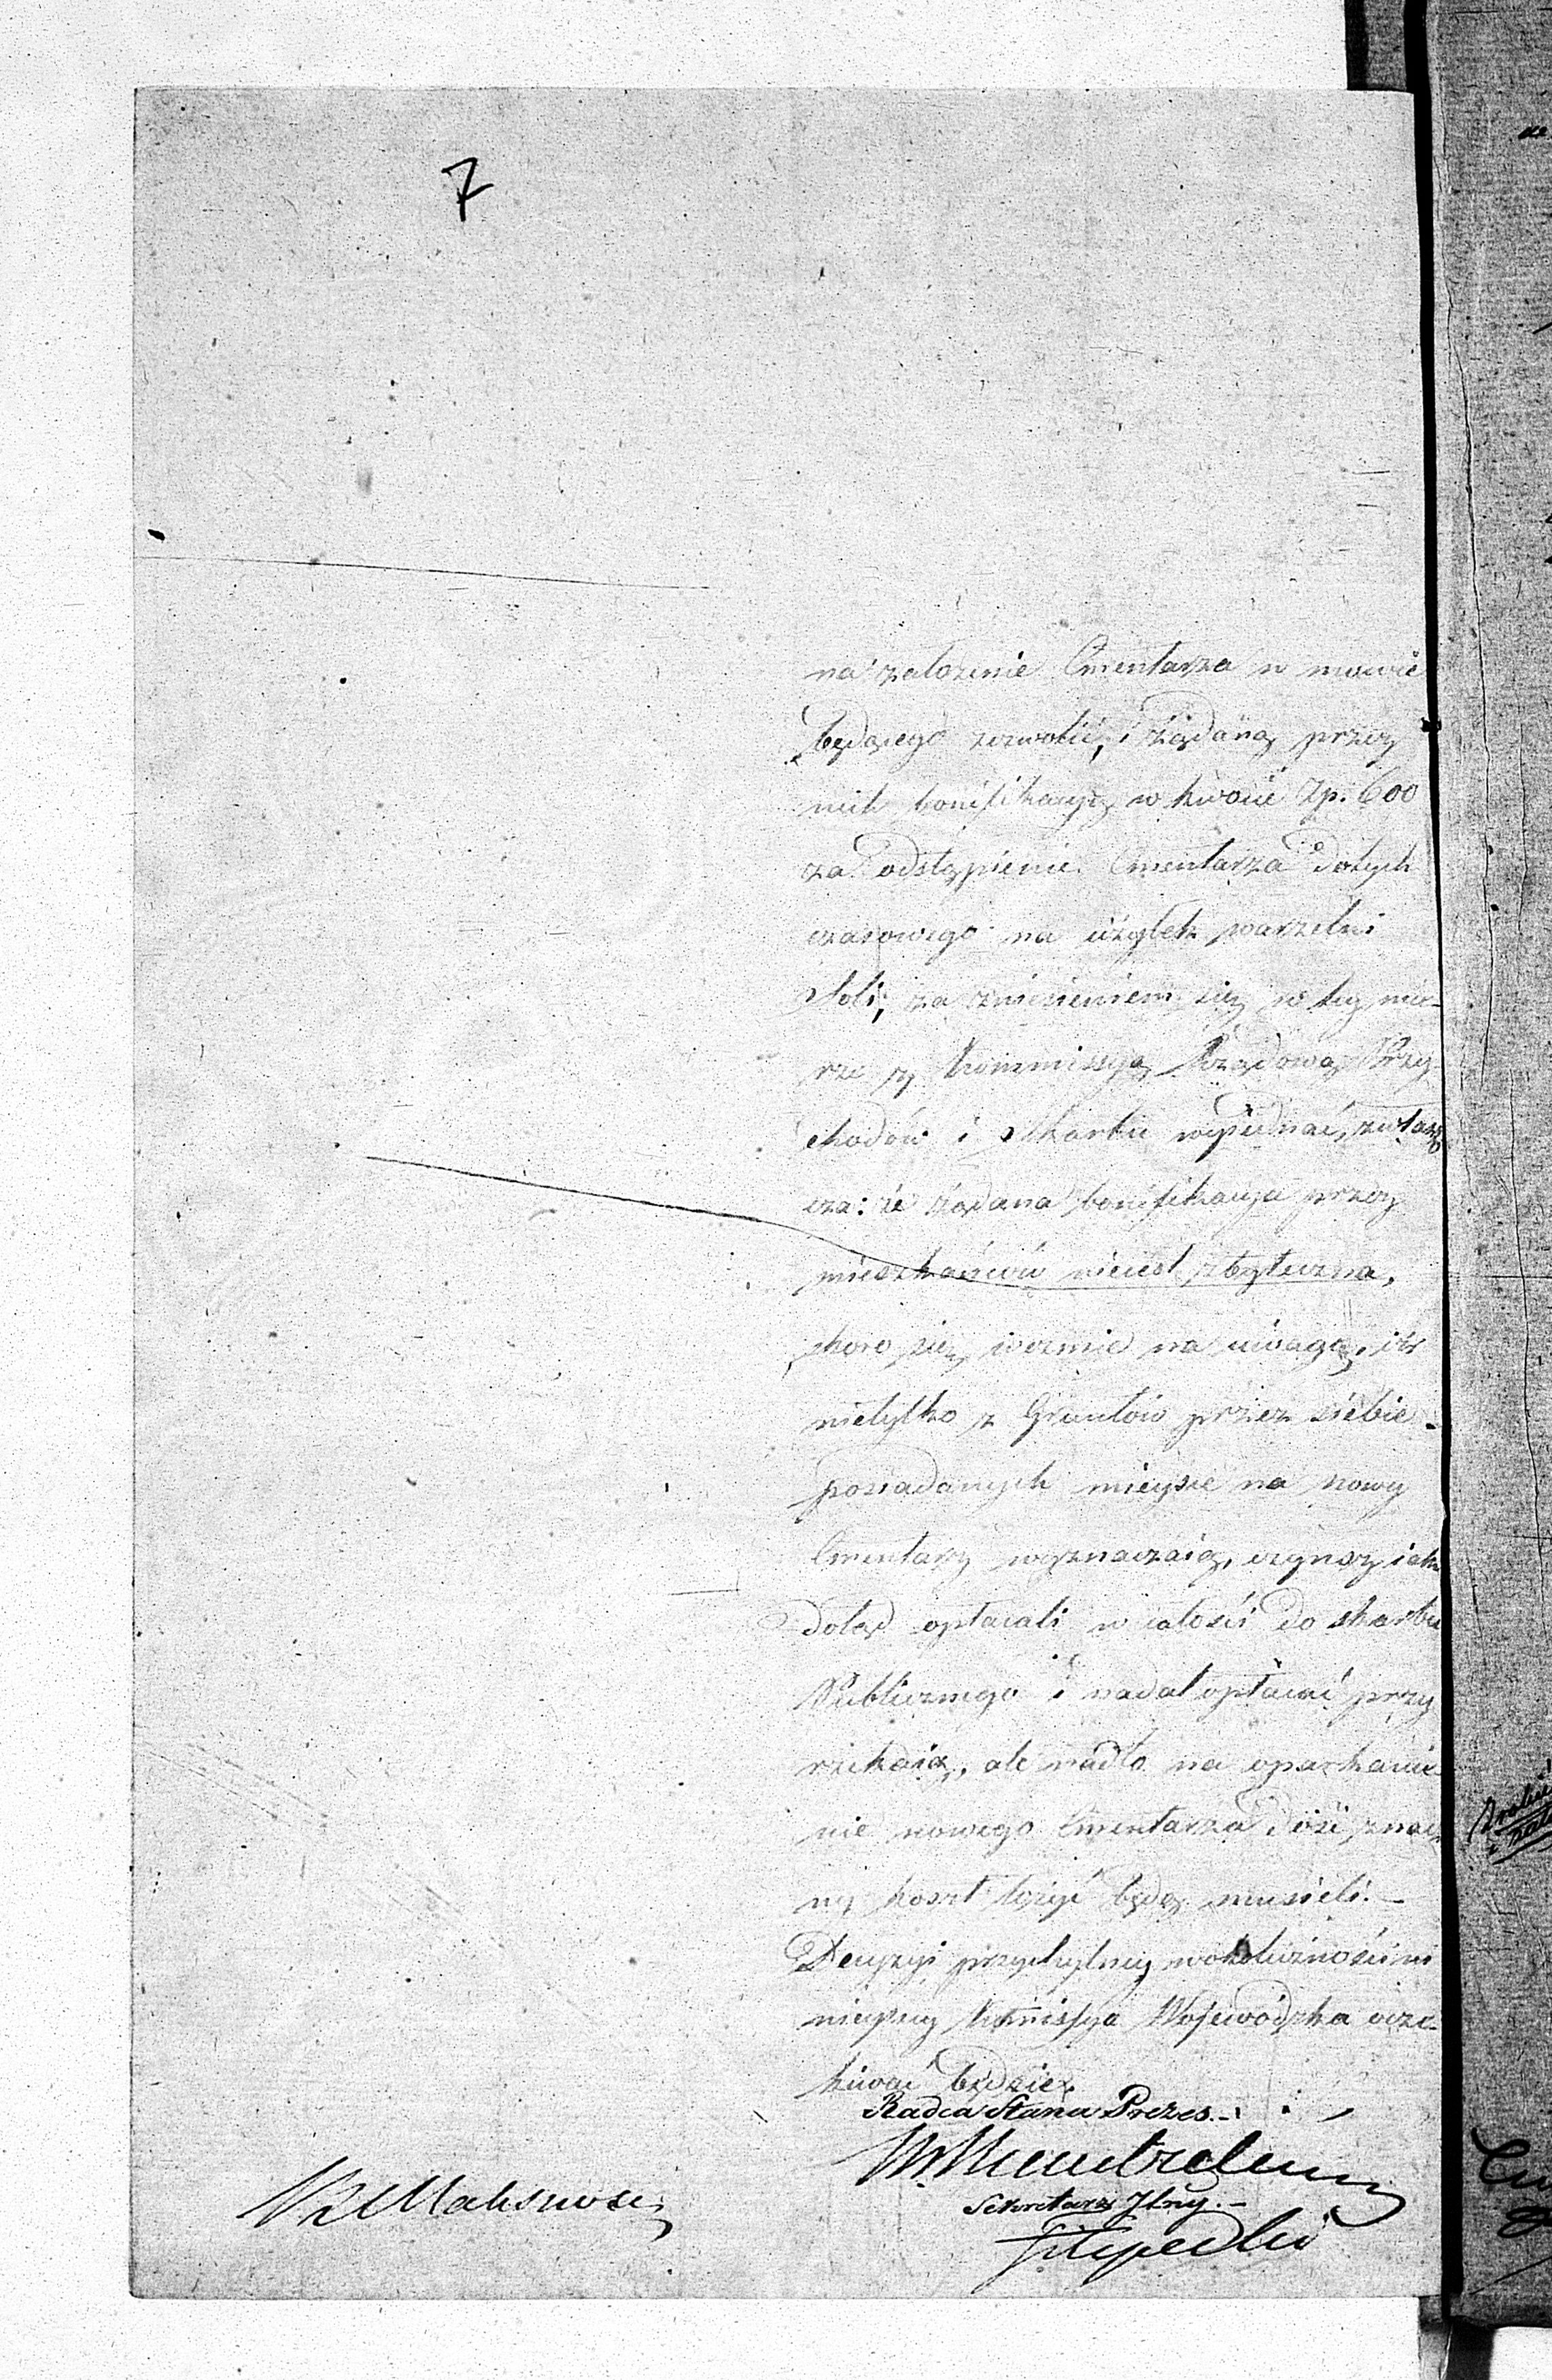 7
na założenie Cmentarza w mowie
będącego zezwolić, i żądaną przez
nich bonifikacyą w kwocie Zp. 600
za odstąpienie Cmentarza dotych
czasowego na użytek warzelni
Soli, za zniesieniem się w tey mie-
rze z Kommissyą Rządową Przy-
chodów i Skarbu wyiednać, zwłasz
cza: że żądana bonifikacya przez
mieszkańców nieiest zbyteczna,
skoro się weźmie na uwagę, iż
nietylko z Gruntów przez siebie
posiadanych mieysce na nowy
Cmentarz wyznaczaią, czynsz iak
dotąd opłacali w całości do skarbu
Publicznego i nadal opłacać przy
rzekaią, ale nadto na oparkanie
nie nowego Cmentarza dość znacz
ny koszt łożyć będą musieli. -
Decyzyi przychylney w okoliczności ni
nieyszey Kommissya Wojewódzka ocze-
kiwać będzie.
Radca Stanu Prezes. -
Sekretarz Jlny. -
Filipecki